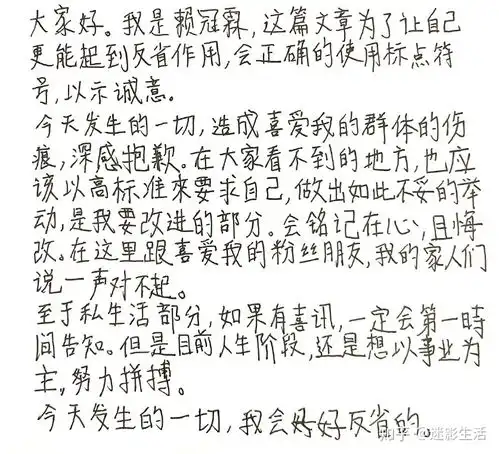 大家好。我是赖冠霖,这篇文章为了让自己
更能起到反省作用,会正确的使用标点符
号,以示诚意。
今天发生的一切,造成喜爱我的群体的伤
痕,深感抱歉。在大家看不到的地方,也应
该以高标准来要求自己,做出如此不妥的举
动,是我要改进的部分。会铭记在心,且悔
改。在这里跟喜爱我的粉丝朋友,我的家人们
说一声对不起。
至于私生活部分,如果有喜讯,一定会第一時
间告知。但是目前人生阶段,还是想以事业为
主,努力拼搏。
今天发生的一切,我会好好反省的。
知乎 @迷影生活